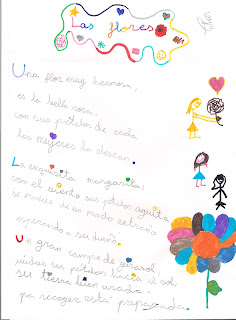 Las flores
Una flor muy hermosa,
es la bella rosa,
con sus pétalos de seda
las mujeres la desean.
La exquisita margarita,
con el viento sus pétalos agita,
se mueve de un modo extraño
esperando a ser dueño.
Un gran campo de girasol,
mueve sus pétalos hacia el sol,
su tierra bien arada
pa recoger está preparada.